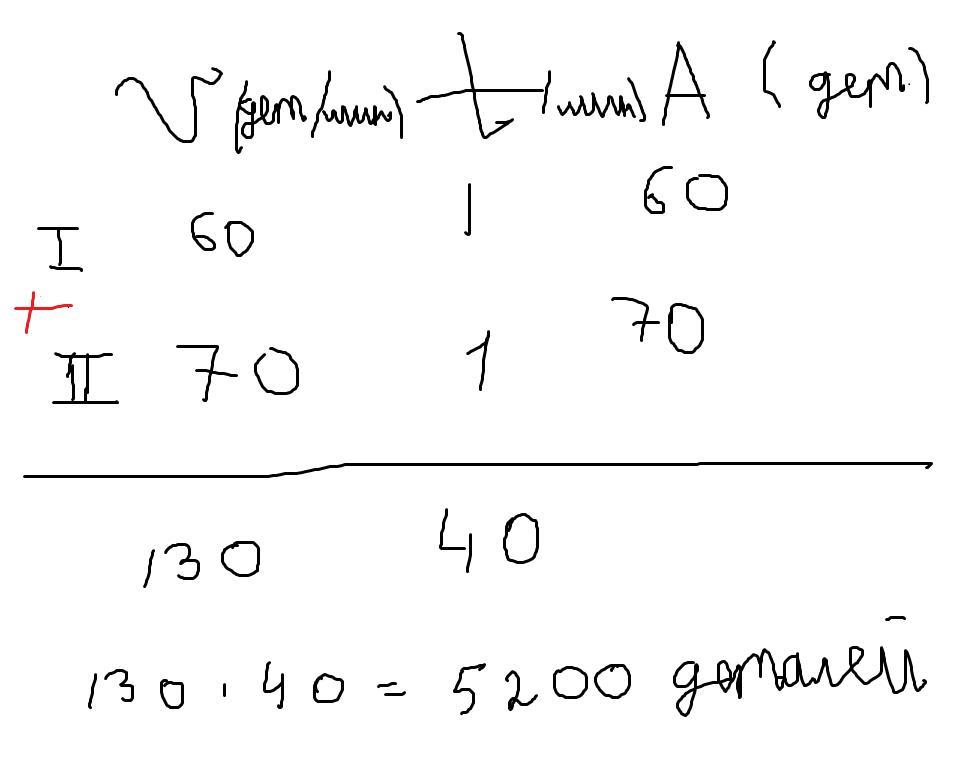 V (дет/мин) t (мин) A (дет.)
I 60 1 60
+
II 70 1 70
130 40
130 · 40 = 5200 деталей